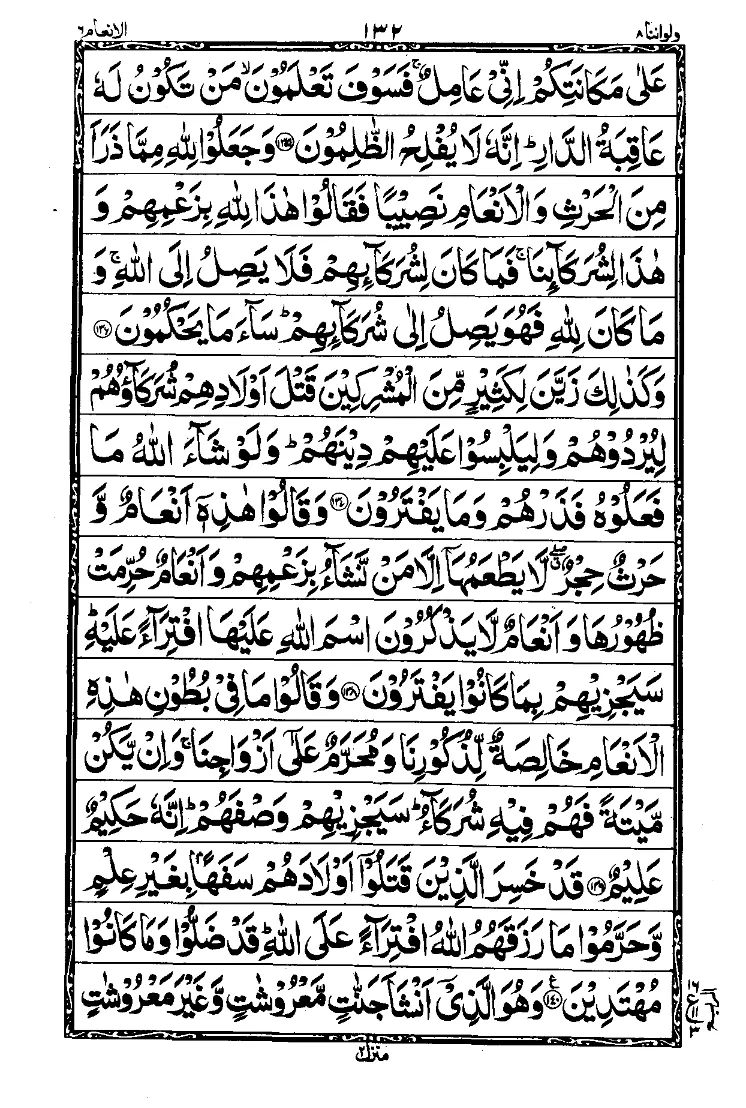 ولواننا ٨ ١٣٢ الانعام ٦
عَلٰى مَكَانَتِكُمْ اِنِّىْ عَامِلٌ ۚ فَسَوْفَ تَعْلَمُوْنَ ۙ مَنْ تَكُوْنُ لَهٗ
عَاقِبَةُ الدَّارِ ؕ اِنَّهٗ لَا يُفْلِحُ الظّٰلِمُوْنَ ﴿۱۳۵﴾ وَجَعَلُوْا لِلّٰهِ مِمَّا ذَرَاَ
مِنَ الْحَرْثِ وَالْاَنْعَامِ نَصِيْبًا فَقَالُوْا هٰذَا لِلّٰهِ بِزَعْمِهِمْ وَ
هٰذَا لِشُرَكَآئِنَا ۚ فَمَا كَانَ لِشُرَكَآئِهِمْ فَلَا يَصِلُ اِلَى اللّٰهِ ۚ وَ
مَا كَانَ لِلّٰهِ فَهُوَ يَصِلُ اِلٰى شُرَكَآئِهِمْ ؕ سَآءَ مَا يَحْكُمُوْنَ ﴿۱۳۶﴾
وَكَذٰلِكَ زَيَّنَ لِكَثِيْرٍ مِّنَ الْمُشْرِكِيْنَ قَتْلَ اَوْلَادِهِمْ شُرَكَآؤُهُمْ
لِيُرْدُوْهُمْ وَلِيَلْبِسُوْا عَلَيْهِمْ دِيْنَهُمْ ؕ وَلَوْ شَآءَ اللّٰهُ مَا
فَعَلُوْهُ فَذَرْهُمْ وَمَا يَفْتَرُوْنَ ﴿۱۳۷﴾ وَقَالُوْا هٰذِهٖۤ اَنْعَامٌ وَّ
حَرْثٌ حِجْرٌ ۖ لَّا يَطْعَمُهَاۤ اِلَّا مَنْ نَّشَآءُ بِزَعْمِهِمْ وَاَنْعَامٌ حُرِّمَتْ
ظُهُوْرُهَا وَاَنْعَامٌ لَّا يَذْكُرُوْنَ اسْمَ اللّٰهِ عَلَيْهَا افْتِرَآءً عَلَيْهِ ؕ
سَيَجْزِيْهِمْ بِمَا كَانُوْا يَفْتَرُوْنَ ﴿۱۳۸﴾ وَقَالُوْا مَا فِىْ بُطُوْنِ هٰذِهِ
الْاَنْعَامِ خَالِصَةٌ لِّذُكُوْرِنَا وَمُحَرَّمٌ عَلٰٓى اَزْوَاجِنَا ۚ وَاِنْ يَّكُنْ
مَّيْتَةً فَهُمْ فِيْهِ شُرَكَآءُ ؕ سَيَجْزِيْهِمْ وَصْفَهُمْ ؕ اِنَّهٗ حَكِيْمٌ
عَلِيْمٌ ﴿۱۳۹﴾ قَدْ خَسِرَ الَّذِيْنَ قَتَلُوْۤا اَوْلَادَهُمْ سَفَهًاۢ بِغَيْرِ عِلْمٍ
وَّحَرَّمُوْا مَا رَزَقَهُمُ اللّٰهُ افْتِرَآءً عَلَى اللّٰهِ ؕ قَدْ ضَلُّوْا وَمَا كَانُوْا
مُهْتَدِيْنَ ﴿۱۴۰﴾ ع وَهُوَ الَّذِىْۤ اَنْشَاَ جَنّٰتٍ مَّعْرُوْشٰتٍ وَّغَيْرَ مَعْرُوْشٰتٍ
منزل ٢